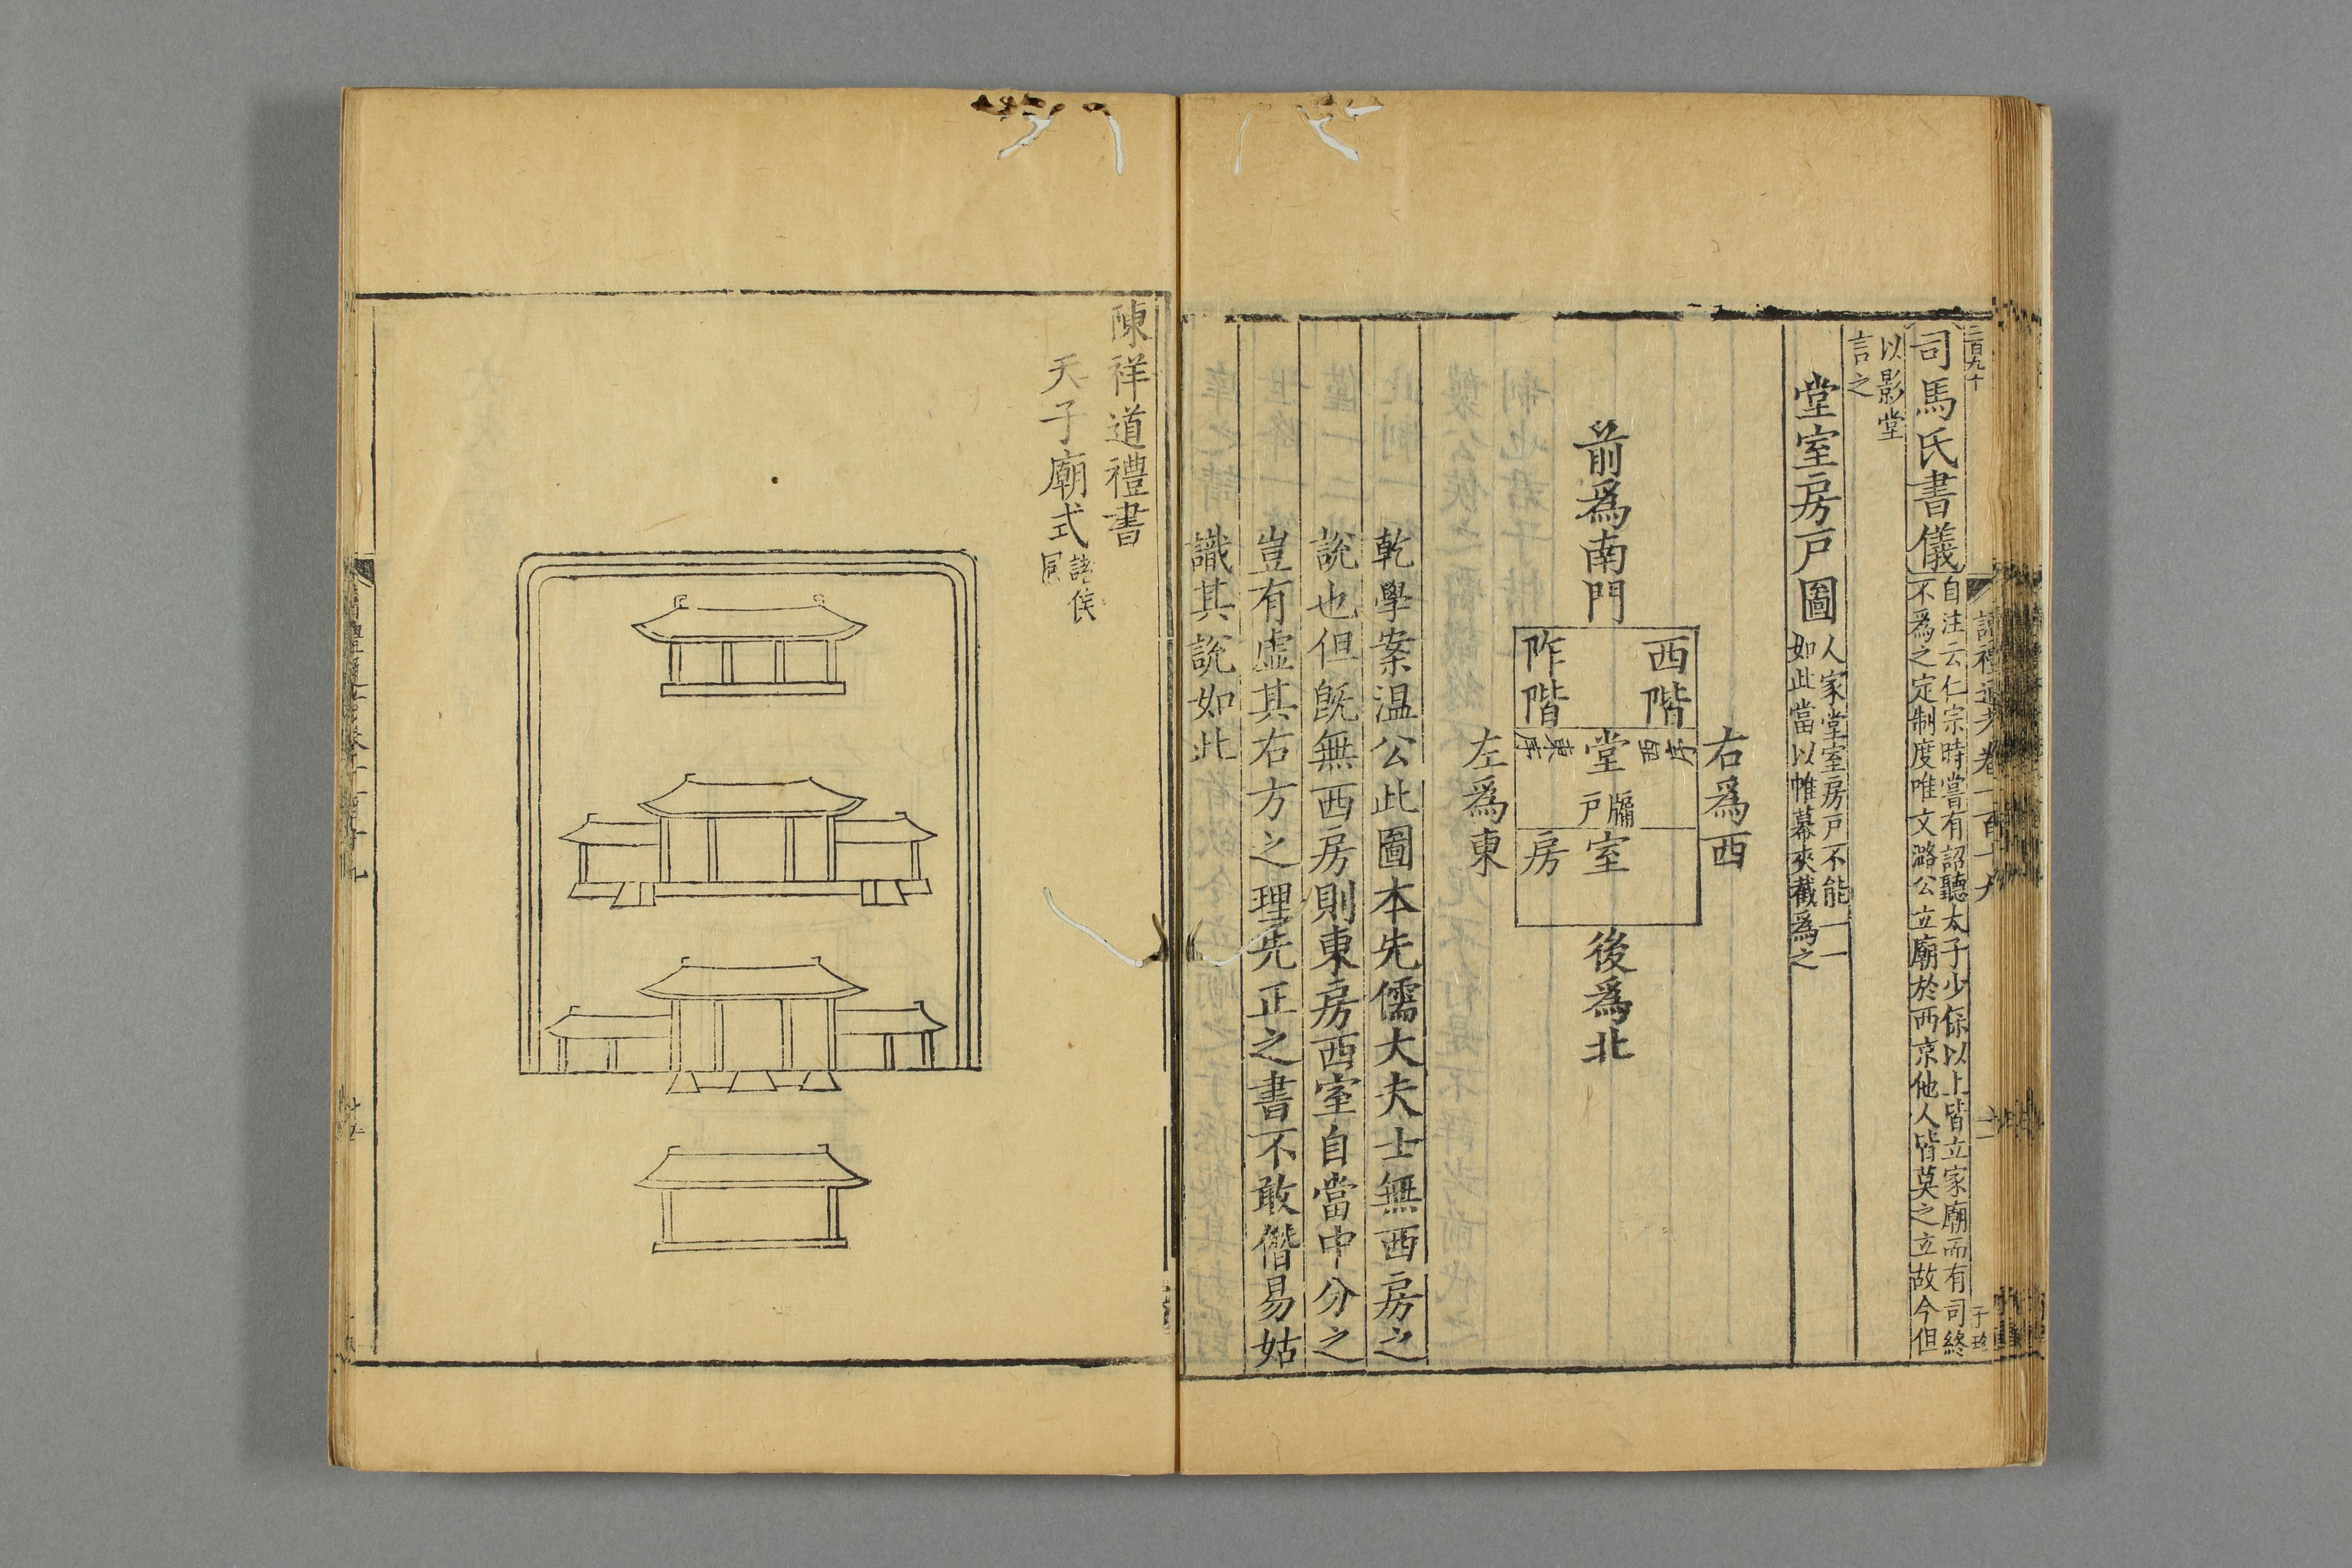 二百九十
讀禮通考卷一百十九
二
子珍
司馬氏書儀
自注云仁宗時嘗有詔聽太子少保以上皆立家廟而有司終
不爲之定制度唯文潞公立廟於西京他人皆莫之立故今但
以影堂
言之
堂室房戸圖
人家堂室房戸不能一一
如此當以帷幕夾截爲之
右爲西
前爲南門
西階
阼階
堂
西序
東序
牖
戸
室
房
後爲北
左爲東
乾學案温公此圖本先儒大夫士無西房之
說也但旣無西房則東房西室自當中分之
豈有虛其右方之理先正之書不敢僭易姑
識其說如此
陳祥道禮書
天子廟式
諸侯
同